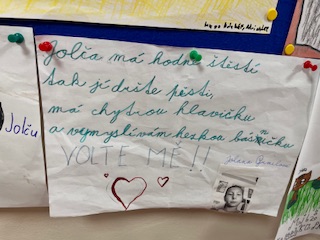 Jolča má hodně štístí
tak jí dejte pěsti,
má chytrou hlavičku
a vymyslí vám hezkou básničku
VOLTE MĚ!!
Jolču